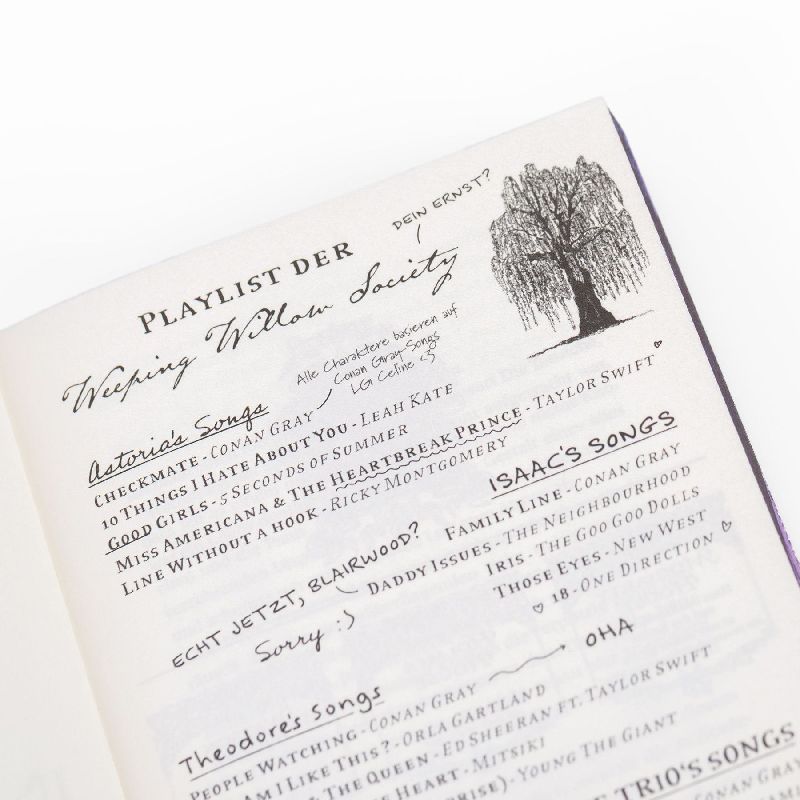 PLAYLIST DER
DEIN ERNST?
Weeping Willow Society
Alle Charaktere basieren auf
Conan Gray-Songs
LG Celine <3
Astoria's Songs
CHECKMATE - CONAN GRAY
10 THINGS I HATE ABOUT YOU - LEAH KATE
GOOD GIRLS - 5 SECONDS OF SUMMER
MISS AMERICANA & THE HEARTBREAK PRINCE - TAYLOR SWIFT ♡
LINE WITHOUT A HOOK - RICKY MONTGOMERY
ISAAC'S SONGS
FAMILY LINE - CONAN GRAY
DADDY ISSUES - THE NEIGHBOURHOOD
IRIS - THE GOO GOO DOLLS
THOSE EYES - NEW WEST
♡ 18 - ONE DIRECTION ♡
ECHT JETZT, BLAIRWOOD?
Sorry :)
Theodore's Songs
PEOPLE WATCHING - CONAN GRAY
OHA
AM I LIKE THIS? - ORLA GARTLAND
& THE QUEEN - ED SHEERAN FT. TAYLOR SWIFT
HEART - MITSKI
- YOUNG THE GIANT
TRIO'S SONGS
CONAN GRAY